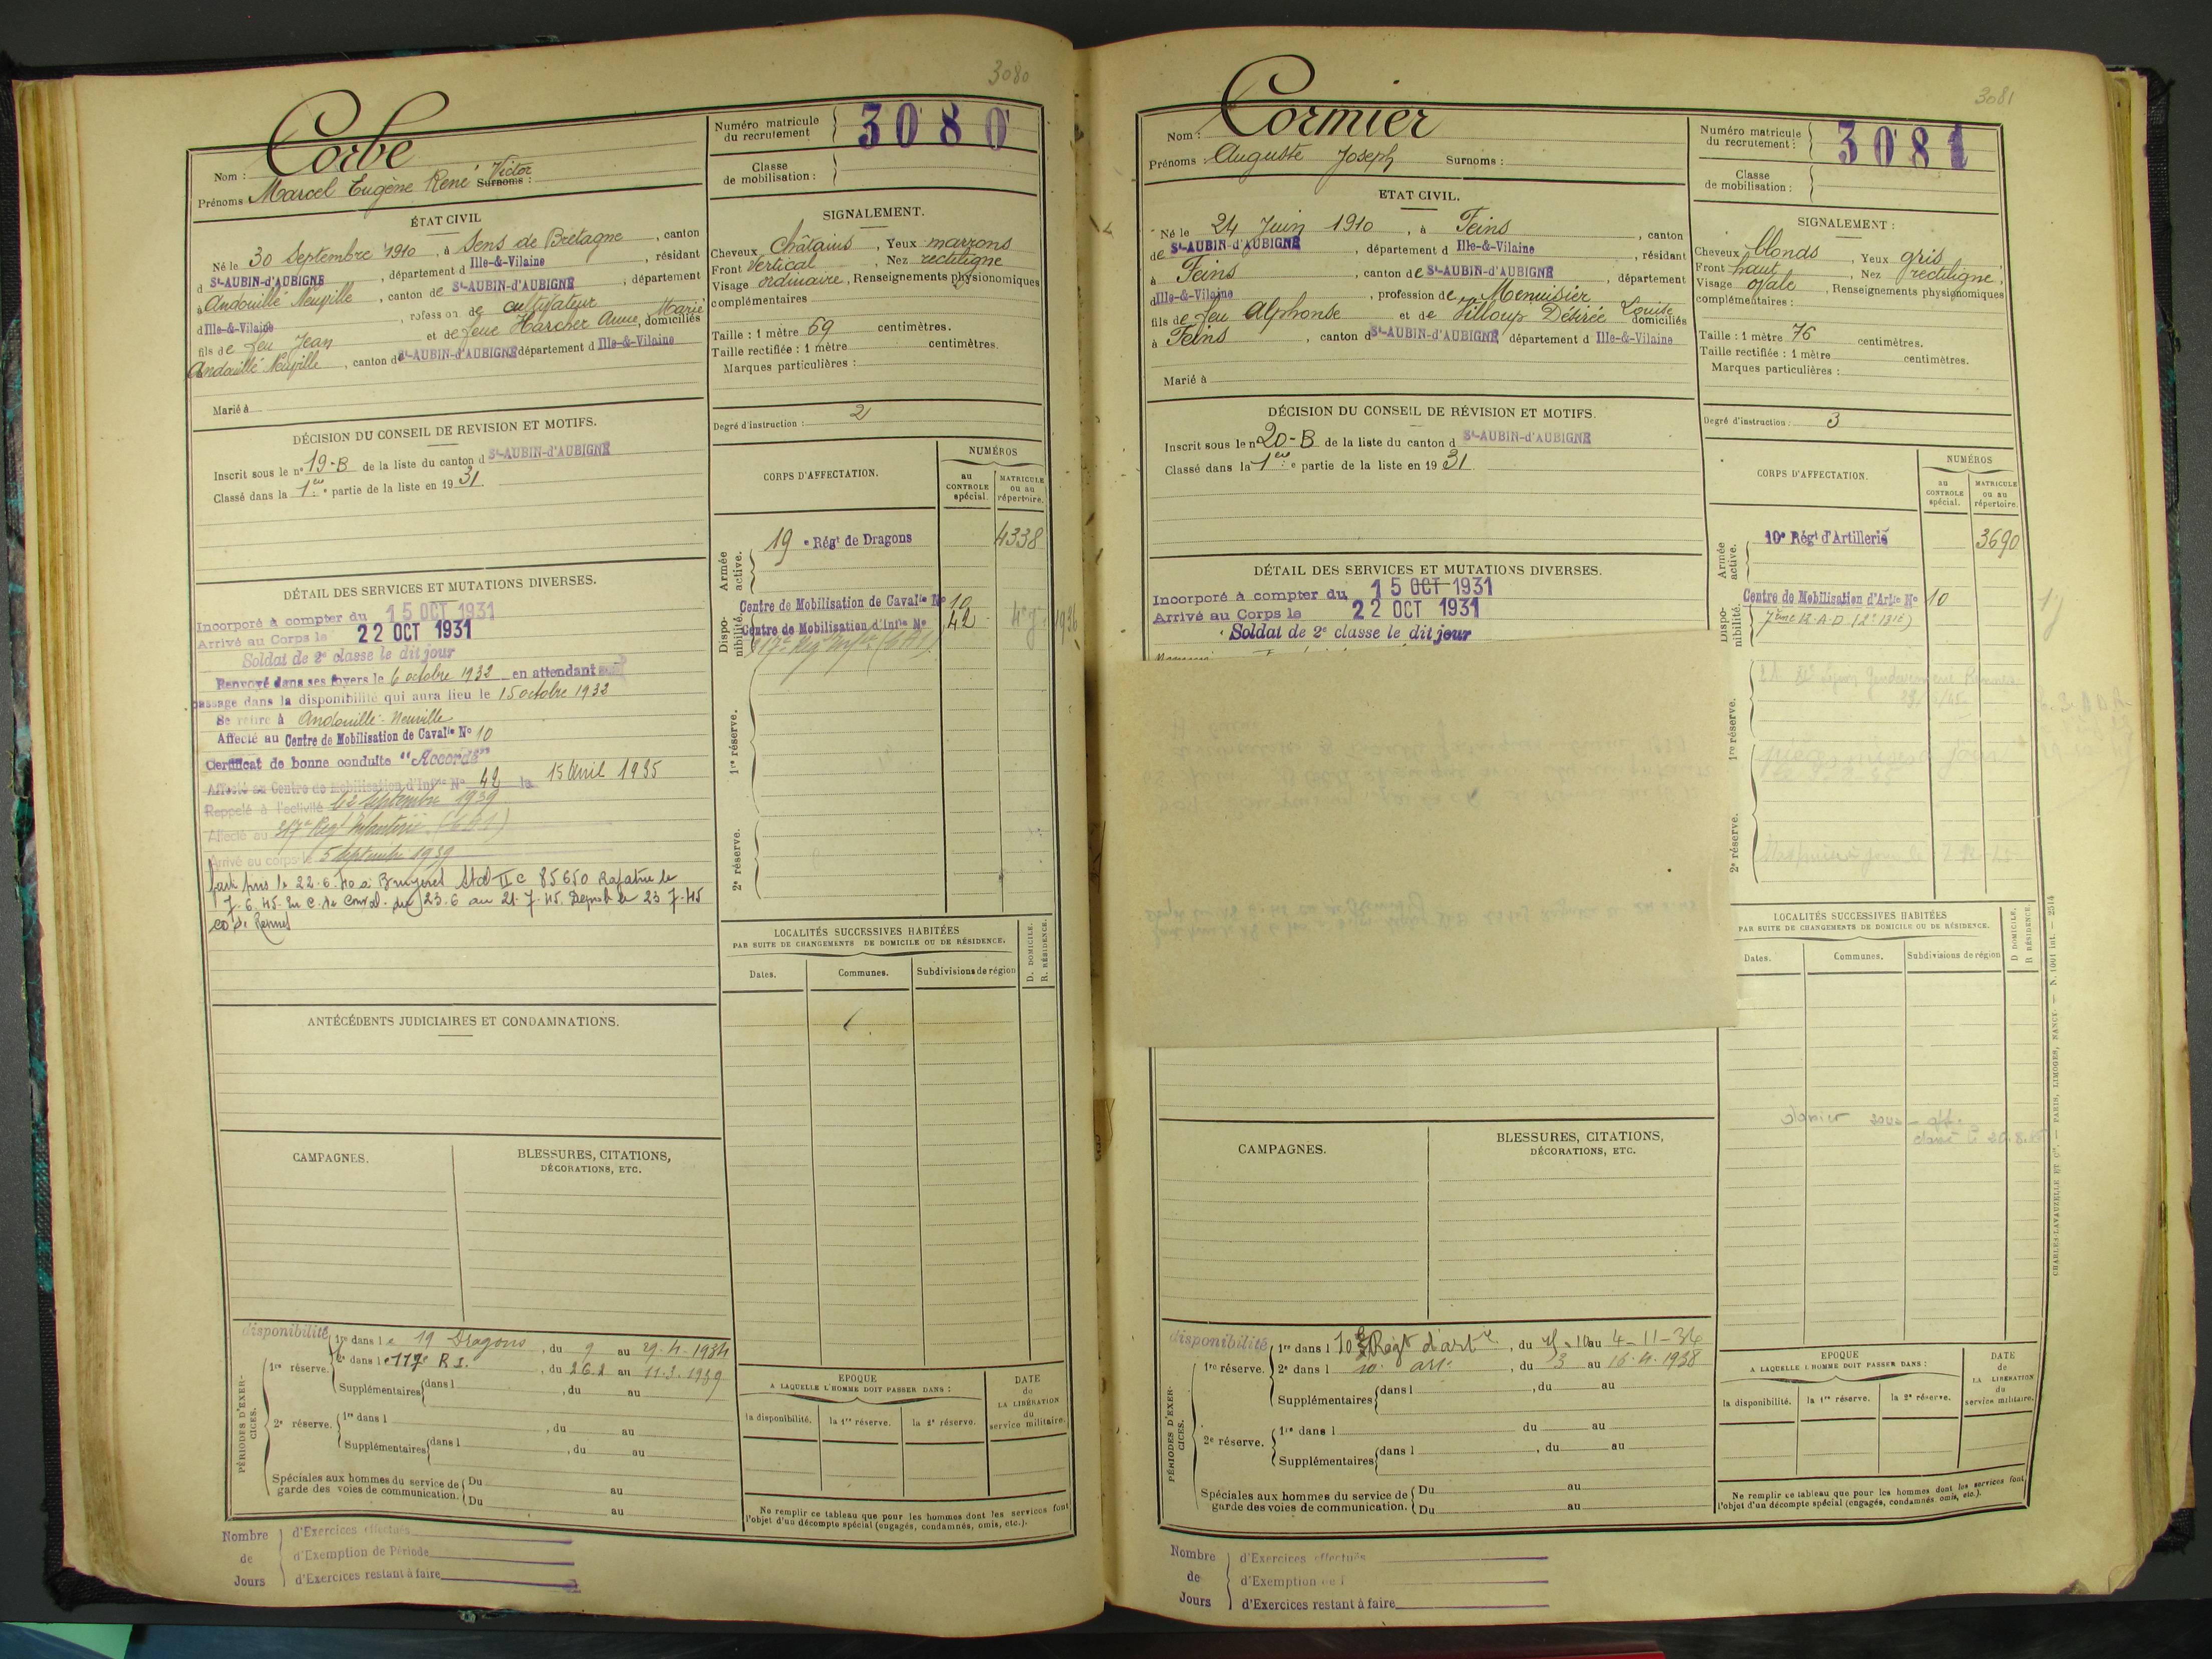 3080
Nom : Corbe
Prénoms Marcel Eugène René Victor Surnoms :
Numéro matricule du recrutement 3080
Classe de mobilisation :
ÉTAT CIVIL
Né le 30 Septembre 1910, à Sens de Bretagne, canton
d St-AUBIN-d'AUBIGNÉ, département d Ille-&-Vilaine, résidant
à Andouillé Neuville, canton de St-AUBIN-d'AUBIGNÉ, département
d Ille-&-Vilaine, profession de cultivateur
fils de feu Jean et de feue Harcher Anne, Marie domiciliés
Andouillé Neuville, canton d St-AUBIN-d'AUBIGNÉ département d Ille-&-Vilaine
Marié à
SIGNALEMENT.
Cheveux Châtains, Yeux marrons
Front Vertical, Nez rectiligne
Visage ordinaire, Renseignements physionomiques
complémentaires
Taille : 1 mètre 69 centimètres.
Taille rectifiée : 1 mètre centimètres.
Marques particulières :
Degré d'instruction : 2
DÉCISION DU CONSEIL DE REVISION ET MOTIFS.
Inscrit sous le n° 19-B de la liste du canton d St-AUBIN-d'AUBIGNÉ
Classé dans la 1ère partie de la liste en 1931
CORPS D'AFFECTATION.
NUMÉROS
au CONTROLE spécial.
MATRICULE ou au répertoire.
Armée active.
19e Régt de Dragons 4338
Disponibilité.
Centre de Mobilisation de Cavalie N° 10
Centre de Mobilisation d'Infie N° 42
1re réserve.
2e réserve.
DÉTAIL DES SERVICES ET MUTATIONS DIVERSES.
Incorporé à compter du 15 OCT 1931
Arrivé au Corps le 22 OCT 1931
Soldat de 2e classe le dit jour
Renvoyé dans ses foyers le 6 octobre 1932 en attendant son
passage dans la disponibilité qui aura lieu le 15 octobre 1932
Se retire à Andouillé-Neuville
Affecté au Centre de Mobilisation de Cavalie N° 10
Certificat de bonne conduite "Accordé"
Affecté au Centre de Mobilisation d'Infie N° 42 le 15 Avril 1935
Rappelé à l'activité le 2 Septembre 1939
Affecté au 317e Regt Infanterie
Arrivé au corps le 5 Septembre 1939
fait pris le 22.6.40 à Bruyères Stal II C 85650 Rapatrié le
7.6.45. en C. de Conval. du 23.6 au 21.7.45. Démob le 23.7.45
co de Rennes
LOCALITÉS SUCCESSIVES HABITÉES
PAR SUITE DE CHANGEMENTS DE DOMICILE OU DE RÉSIDENCE.
D. DOMICILE.
R. RÉSIDENCE.
Dates. Communes. Subdivisions de région
ANTÉCÉDENTS JUDICIAIRES ET CONDAMNATIONS.
CAMPAGNES.
BLESSURES, CITATIONS,
DÉCORATIONS, ETC.
PÉRIODES D'EXERCICES.
disponibilité
1re réserve. 1re dans le 19 Dragons, du 9 au 29.4.1934
2e dans le 117e R I., du 26.2 au 11.3.1939
Supplémentaires dans l , du au
2e réserve. 1re dans l , du au
Supplémentaires dans l , du au
Spéciales aux hommes du service de garde des voies de communication. Du au
Du au
EPOQUE
A LAQUELLE L'HOMME DOIT PASSER DANS :
la disponibilité. la 1re réserve. la 2e réserve.
DATE de LA LIBÉRATION du service militaire.
Ne remplir ce tableau que pour les hommes dont les services font
l'objet d'un décompte spécial (engagés, condamnés, omis, etc.).
Nombre de Jours
d'Exercices effectués
d'Exemption de Période
d'Exercices restant à faire
3081
Nom : Cormier
Prénoms : Auguste Joseph Surnoms :
Numéro matricule du recrutement : 3081
Classe de mobilisation :
ETAT CIVIL.
Né le 24 Juin 1910, à Feins, canton
de St-AUBIN-d'AUBIGNÉ, département d Ille-&-Vilaine, résidant
à Feins, canton de St-AUBIN-d'AUBIGNÉ, département
d Ille-&-Vilaine, profession de Menuisier
fils de feu Alphonse et de Villoup Désirée Louise domiciliés
à Feins, canton d St-AUBIN-d'AUBIGNÉ département d Ille-&-Vilaine
Marié à
SIGNALEMENT :
Cheveux blonds, Yeux gris
Front haut, Nez rectiligne
Visage ovale, Renseignements physionomiques
complémentaires :
Taille : 1 mètre 76 centimètres.
Taille rectifiée : 1 mètre centimètres.
Marques particulières :
Degré d'instruction : 3
DÉCISION DU CONSEIL DE RÉVISION ET MOTIFS.
Inscrit sous le n° 20-B de la liste du canton d St-AUBIN-d'AUBIGNÉ
Classé dans la 1ère partie de la liste en 1931
CORPS D'AFFECTATION.
NUMÉROS
au CONTROLE spécial.
MATRICULE ou au répertoire.
Armée active.
10e Régt d'Artillerie 3690
Disponibilité.
Centre de Mobilisation d'Artie N° 10
1re réserve.
2e réserve.
DÉTAIL DES SERVICES ET MUTATIONS DIVERSES.
Incorporé à compter du 15 OCT 1931
Arrivé au Corps le 22 OCT 1931
Soldat de 2e classe le dit jour
LOCALITÉS SUCCESSIVES HABITÉES
PAR SUITE DE CHANGEMENTS DE DOMICILE OU DE RÉSIDENCE.
D DOMICILE.
R RÉSIDENCE.
Dates. Communes. Subdivisions de région
CAMPAGNES.
BLESSURES, CITATIONS,
DÉCORATIONS, ETC.
PÉRIODES D'EXERCICES.
disponibilité
1re réserve. 1re dans l 10e Regt d'artie, du 15-10 au 4-11-34
2e dans l 10e art., du 3 au 16.4.1938
Supplémentaires dans l , du au
2e réserve. 1re dans l du au
Supplémentaires dans l , du au
Spéciales aux hommes du service de garde des voies de communication. Du au
Du au
EPOQUE
A LAQUELLE L'HOMME DOIT PASSER DANS :
la disponibilité. la 1re réserve. la 2e réserve.
DATE de LA LIBÉRATION du service militaire.
Ne remplir ce tableau que pour les hommes dont les services font
l'objet d'un décompte spécial (engagés, condamnés omis, etc.).
Nombre de Jours
d'Exercices effectués
d'Exemption de
d'Exercices restant à faire
CHARLES-LAVAUZELLE ET Cie. — PARIS, LIMOGES, NANCY. — N. 1001 int. — 2514